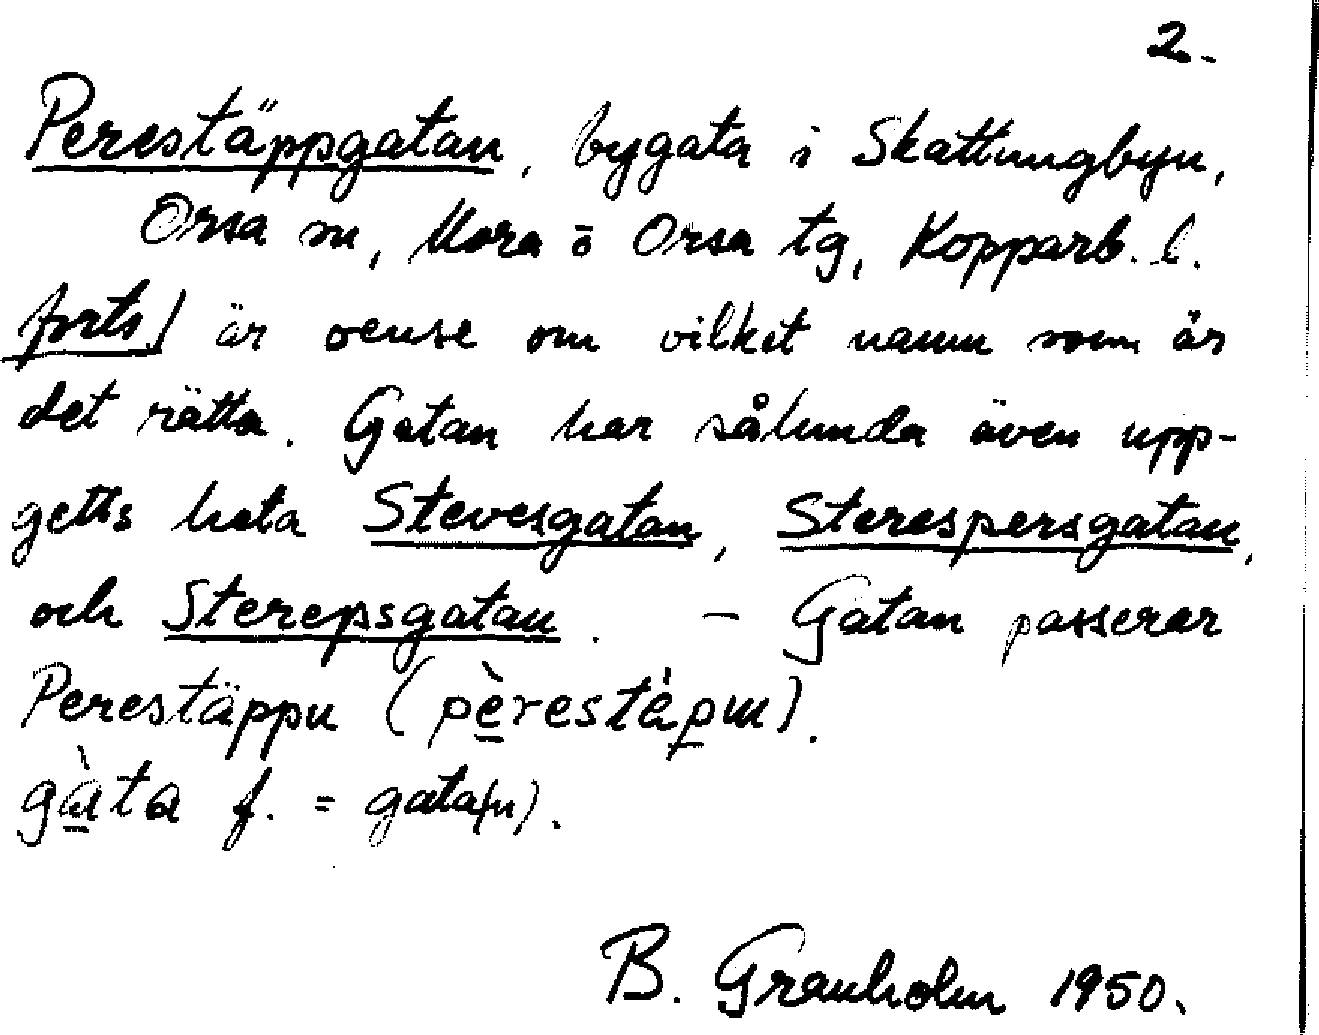 2.
Perestäppgatan, bygata i Skattungbyn,
Orsa sn, Mora o Orsa tg, Kopparb. l.
forts) är oense om vilket namn som är
det rätta. Gatan har sålunda även upp-
getts heta Stevesgatan, Sterespersgatan,
och Sterepsgatan. – Gatan passerar
Perestäppu (pèrestápm).
gàta f. = gata(n).
B. Granholm 1950.